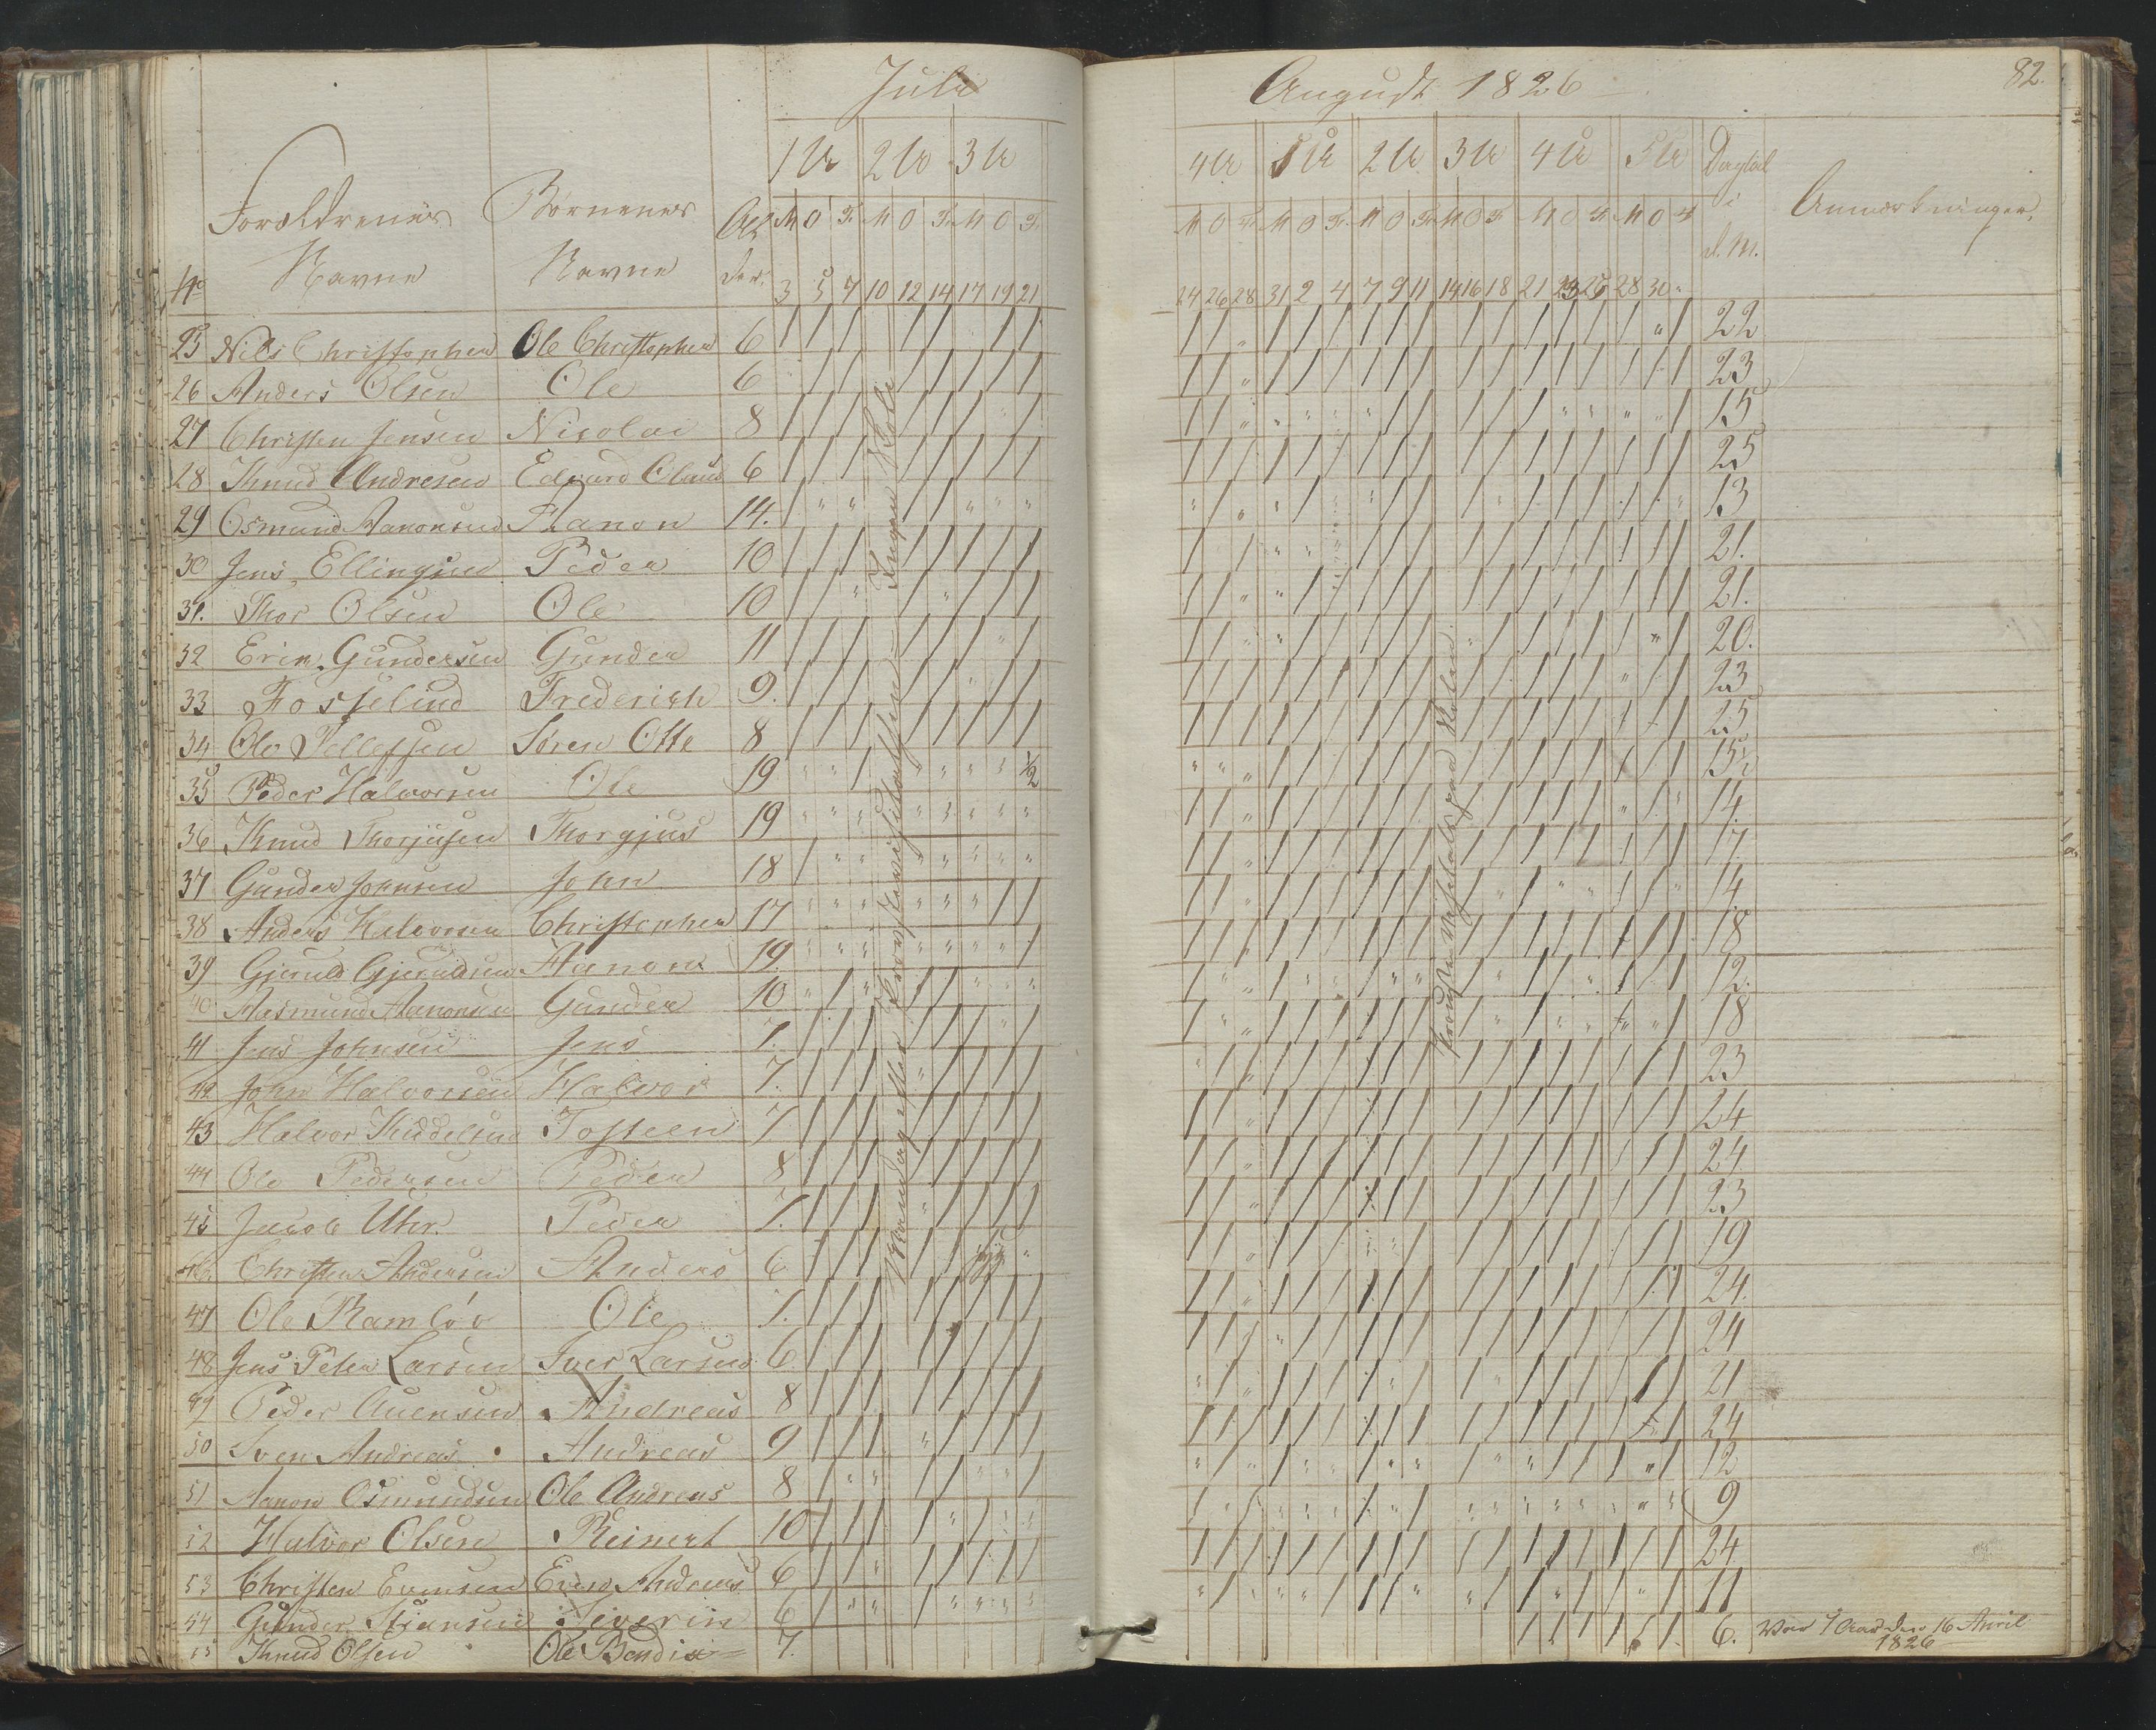 Juli
August 1826
82.
1 U 2 U 3 U
4 U 1 U 2 U 3 U 4 U 5 U Dagtal
No Forældrenes Navne Børnenes Navne Alder M O Fr. M O Fr. M O Fr.
M O Fr. M O Fr. M O Fr. M O Fr. M O Fr. M O Fr. i d. M. Anmærkninger.
3 5 7 10 12 14 17 19 21
24 26 28 31 2 4 7 9 11 14 16 18 21 23 25 28 30
25 Niels Christopher Ole Christopher 6 22
26 Anders Olsen Ole 6 23
27 Christen Jensen Nicolai 8 15
28 Knud Andresen Edvard Olaus 6 25
29 Osmund Aanonsen Aanon 14. 13
30 Jens Ellingsen Peder 10 21.
31. Thor Olsen Ole 10 21.
32 Erik Gundersen Gunder 11 20.
33 Fosselund Frederich 9. 23
34 Ole Tellefsen Søren Otte 8 25
35 Peder Halvorsen Ole 19 ½ 15½
36 Knud Thorjusen Thorgjus 19 14.
37 Gunder Johnsen John 18 17
38 Anders Halvorsen Christopher 17 14
39 Gjeruld Gjeruldsen Aanon 19. 18
40 Aasmund Aanonsen Gunder 10 12.
41 Jens Johnsen Jens 7. 18
42 John Halvorsen Halvor 7. 23
43 Halvor Knudelsen Tosteen 7 24
44 Ole Pedersen Peder 8 24
45 Jacob Uhr. Peder 7. 23
46. Christen Andersen Anders 6 19
47 Ole Ramløv Ole 7. 24
48 Jens Peter Larsen Iver Larsen 6 24
49 Peder Auensen Andreas 8 21
50 Sven Andreas Andreas 9 24
51 Aanon Osmundsen Ole Andreas 8 12
52 Halvor Olsen Reinert 10 9
53 Christen Evensen Even Andreas 6 24
54 Gunder Severin 6 11
55 Knud Olsen Ole Bendix 7. 6. Var 7 Aar den 16 April
1826
Ingen Skole
Mandag efter
Skolen.